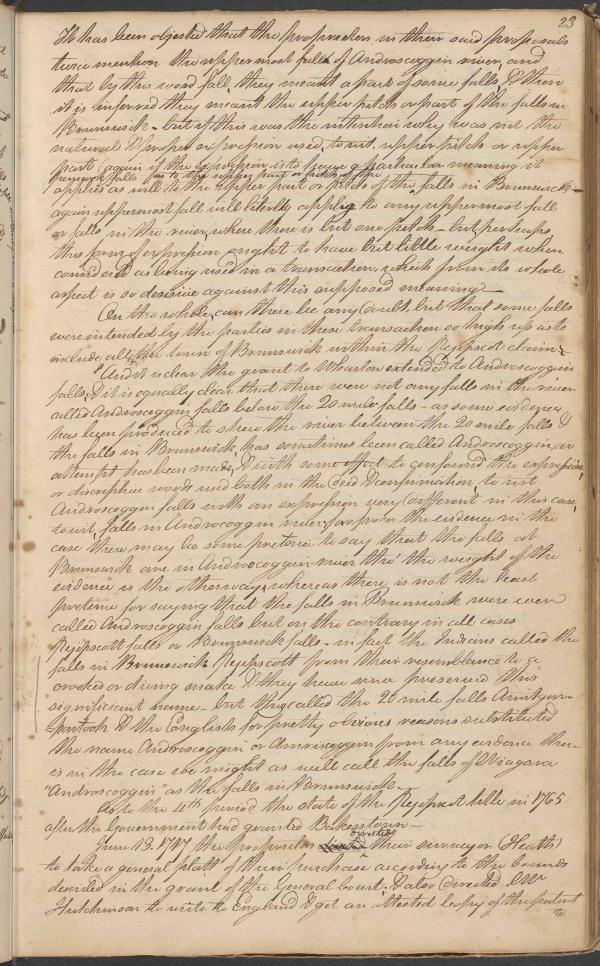 23
It has been objected that the proprietors in their said proposals
twice mention the uppermost fall of Androscoggin river, and
that by this word fall, they meant a part of some falls, & then
it is inferred they meant the upper pitch or part of the falls in
Brunswick - but if this was the intention why was not the
natural & proper expression used, to wit, upper pitch or upper
part (again if the expression is to have a particular meaning it
falls as to the upper part or pitch of the
applies as well to the upper part or pitch of the falls in Brunswick -
again uppermost fall will literally apply to any uppermost fall
or falls in the river, where there is but one pitch - but perhaps
this form of expression ought to have but little weight when
considered as being used in a transaction, which from its whole
aspect is so decisive against this supposed meaning -
On the whole, can there be any doubt, but that some falls
were intended by the parties in these transaction so high up as to
include all the town of Brunswick within the Pejepscot claim
And it is clear the grant to Wharton extended to Androscoggin
falls, & it is equally clear that there were not any falls in the river
called Androscoggin falls before the 20 mile falls - as some evidence
has been produced to shew the river between the 20 mile falls &
the falls in Brunswick, has sometimes been called Androscoggin, an
attempt has been made, & with some effect to confound the expression,
or descriptive words used both in the deed & confirmation, to wit
Androscoggin falls with an expression very different in this case,
to wit, falls in Androscoggin river, for from the evidence in the
case there may be some pretence to say that the falls at
Brunswick are in Androscoggin river tho' the weight of the
evidence is the other way, whereas there is not the least
pretence for saying that the falls in Brunswick were ever
called Androscoggin falls but on the contrary in all cases
Pejepscott falls or Brunswick falls - in fact the Indians called the
falls in Brunswick Pejepscott from their resemblance to a
crooked or diving snake & they have since preserved this
significant name - but they called the 20 mile falls
& the English for pretty obvious reasons substituted
the name Androscoggin or Amariscoggin from any evidence there
is in the case we might as well call the falls of Niagara
"Androscoggin" as the falls in Brunswick -
As to the 4th period the state of the Pejepscot title in 1765
after the Government had granted Bakerstown -
directed
June 13. 1717 the proprietors their surveyor (Heath)
to take a general platt of their purchase according to the bounds
described in the grant of the General Court, & also directed Mr
Hutchinson to write to England & get an attested copy of the patent
to